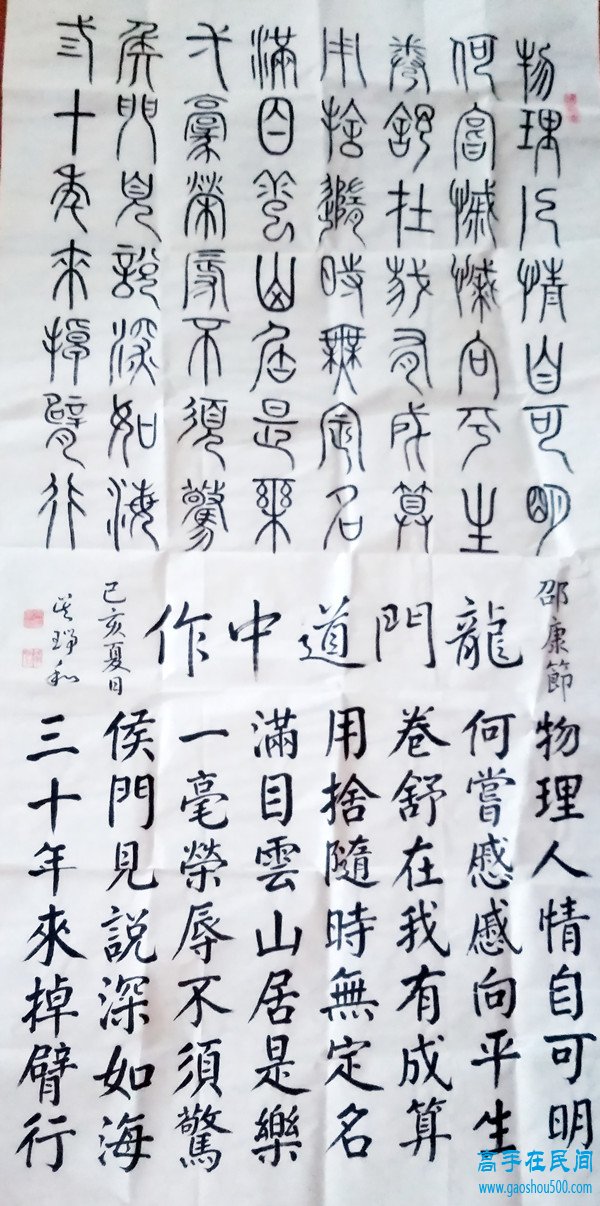 物理人情自可明
何嘗慼慼向平生
卷舒在我有成算
用捨隨時無定名
滿目雲山居是樂
弌豪榮辱不須驚
侯門見說深如海
弎十年來掉臂行
邵康節
龍門道中作
己亥夏日
物理人情自可明
何嘗慼慼向平生
卷舒在我有成算
用捨隨時無定名
滿目雲山居是樂
一毫榮辱不須驚
侯門見説深如海
三十年來掉臂行
高手在民间
www.gaoshou500.com